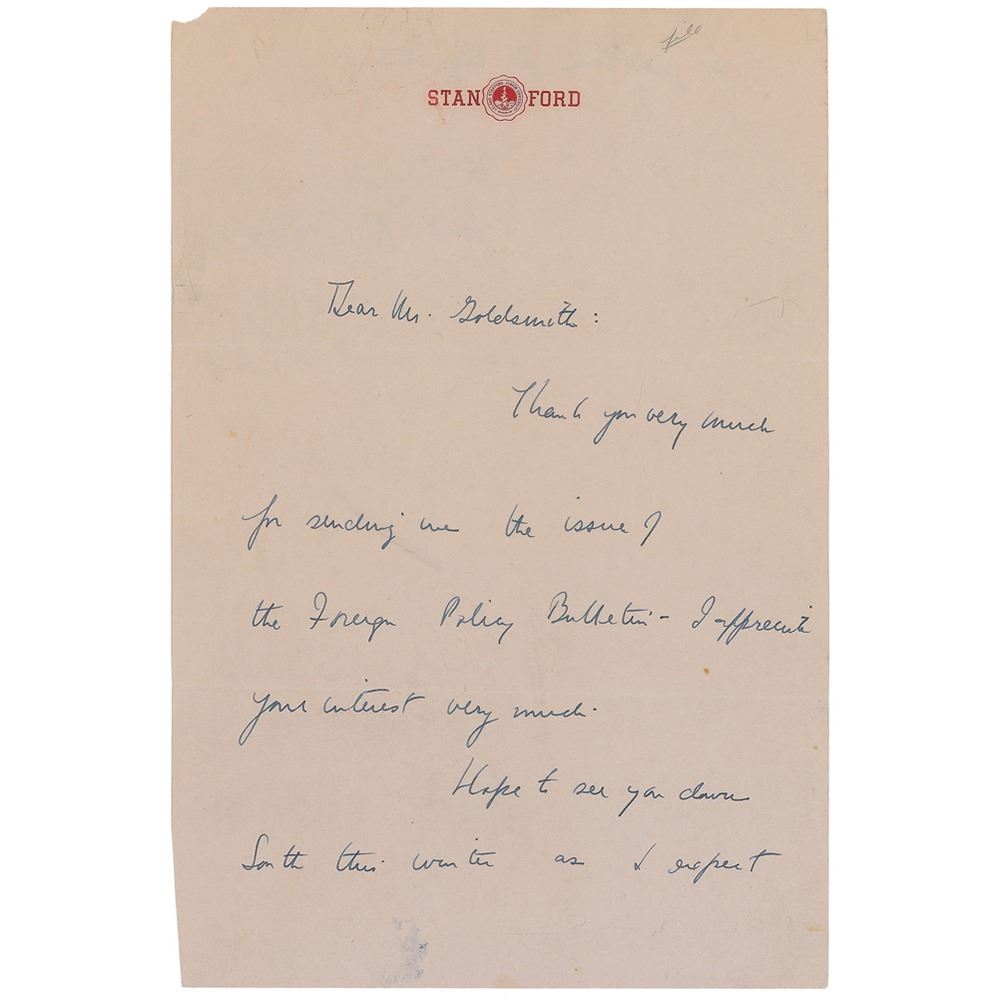 file
STANFORD
Dear Mr. Goldsmith:
Thank you very much
for sending me the issue of
the Foreign Policy Bulletin - I appreciate
your interest very much.
Hope to see you down
South this winter as I expect